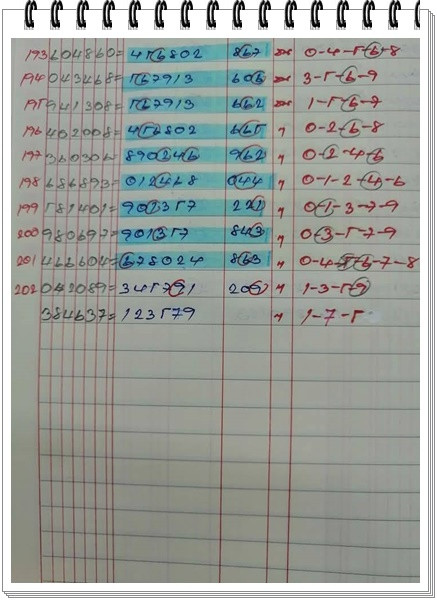 193 604860= 456802 867 " 0-4-5-6-8
194 043468 567913 606 " 3-5-6-9
195 941308= 567913 662 " 1-5-6-9
196 402008= 456802 665 " 0-2-6-8
197 360306 890246 962 " 0-2-4-6
198 686893= 012468 044 " 0-1-2-4-6
199 581401= 901357 221 " 0-1-3-7-9
200 980697= 901357 843 " 0-3-5-7-9
201 466604= 678024 863 " 0-4-5-6-7-8
202 042089= 345791 209 " 1-3-5-9
384637= 123579 " 1-7-5